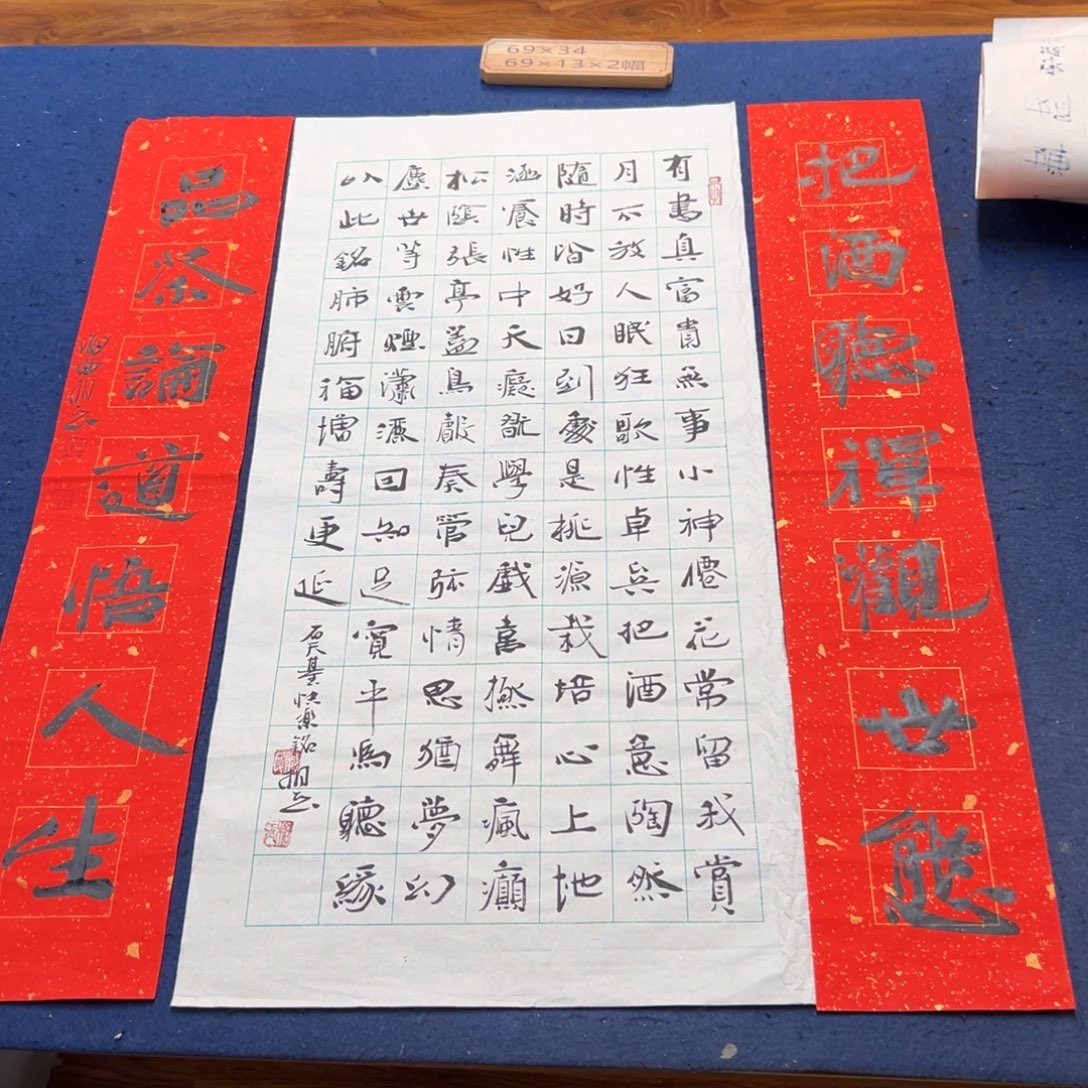 69×34
69×13×2幅
把酒聽禪觀世態
有書真富貴無事小神僊花常留我賞
月不放人眠狂歌性卓兵把酒意陶然
隨時洽好日到處是桃源栽培心上地
涵養性中天癡就學兒戲舞瘋癲
松蔭張亭蓋鳥聲奏管弦情思猶夢幻
塵世等雲煙瀟灑因知足寬平為聽緣
以此銘肺腑福增壽更延
石天基快樂銘
品茶論道悟人生